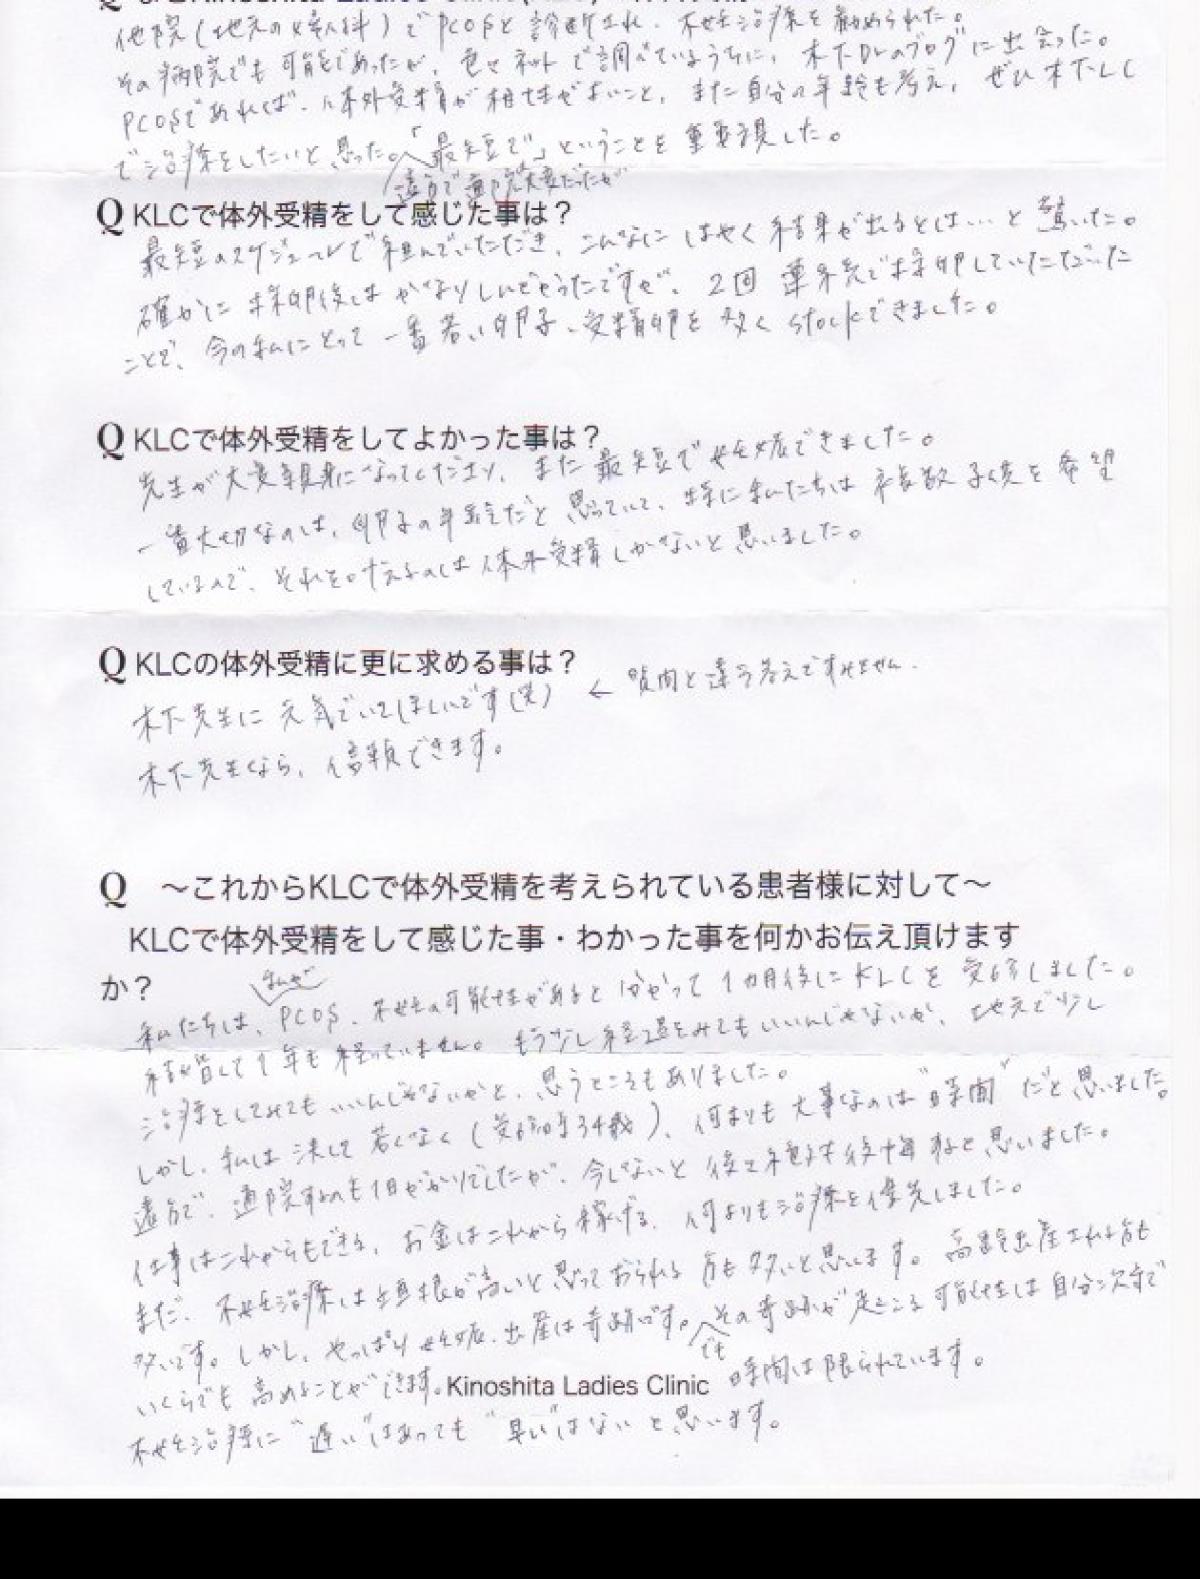 他院(地元の婦人科)でPCOSと診断され、不妊治療を勧められた。
その病院でも可能であったが、色々ネットで調べているうちに、木下Drのブログに出会った。
PCOSであれば、体外受精が相性がよいこと、また自分の年齢も考え、ぜひ木下LC
で治療をしたいと思った。「最短で」ということを重要視した。
遠方で通院大変だったが
Q KLCで体外受精をして感じた事は?
最短のスケジュールで組んでいただき、こんなにはやく結果が出るとは…と驚いた。
確かに採卵後はかなりしんどそうたですが、2回連続で採卵していただいた
ことで、今の私にとって一番若い卵子、受精卵を多くstockできました。
Q KLCで体外受精をしてよかった事は?
先生が大変親身になってくださり、また最短で妊娠できました。
一番大切なのは、卵子の年齢だと思っていて、特に私たちは複数子供を希望
しているので、それを叶えるのは体外受精しかないと思いました。
Q KLCの体外受精に更に求める事は?
木下先生に元気でいてほしいです(笑) ← 質問と違う答えですみません.
木下先生なら、信頼できます。
Q ～これからKLCで体外受精を考えられている患者様に対して～
KLCで体外受精をして感じた事・わかった事を何かお伝え頂けます
か?
私たちは、PCOS、不妊の可能性があると分かって1カ月後にKLCを受診しました。
結婚して1年も経っていません。もう少し経過をみてもいいんじゃないか、地元で少し
治療をしてみてもいいんじゃないかと、思うところもありました。
しかし、私は決して若くなく(受診時34歳)、何よりも大事なのは"時間"だと思いました。
遠方で、通院するのも1日がかりでしたが、今しないと後で絶対後悔すると思いました。
仕事はこれからもできる、お金はこれから稼げる、何よりも治療を優先しました。
まだ、不妊治療は垣根が高いと思っておられる方も多いと思います。高齢出産される方も
多いです。しかし、やっぱり妊娠、出産は奇跡です。でもその奇跡が起こる可能性は自分次第で
いくらでも高めることができます。Kinoshita Ladies Clinic 時間は限られています。
不妊治療に"遅い"はあっても"早い"はないと思います。